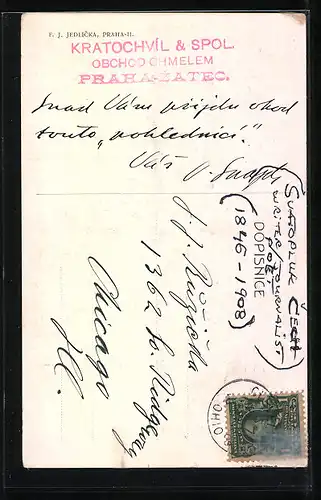 F. J. JEDLIČKA, PRAHA-II.
KRATOCHVÍL & SPOL.
OBCHOD CHMELEM
PRAHA-ŽATEC.
Snad Vám přijdu vhod
touto „pohlednicí“.
Váš
DOPISNICE
(SVATOPLUK ČECH
WRITER JOURNALIST
POET
(1846-1908)
J. J. Růžička
1362 Ridgeway
Chicago
Ill.
OHIO